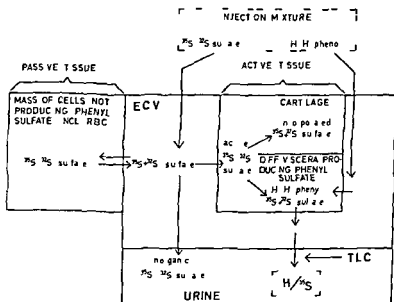 NJECTION M XTURE
³⁵S ³²S su a e H H pheno
PASS VE T SSUE
ACT VE T SSUE
MASS OF CELLS NOT
PRODUC NG PHENYL
SULFATE NCL RBC
ECV
CART LAGE
n o po a ed
³⁵S ³²S su fa e
ac e
³⁵S ³²S
su a e
D FF V SCERA PRO
DUC NG PHENYL
SULFATE
H H pheny
³⁵S ³²S sul a e
³⁵S ³²S su fa e
³⁵S+³²S su fa e
no gan c
³⁵S ³²S su a e
TLC
H/³⁵S
URINE